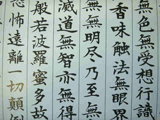 無色無受想行識
香味觸法無眼界
無無明盡乃至無
滅道無智亦無得
般若波羅蜜多故
恐怖遠離一切顛